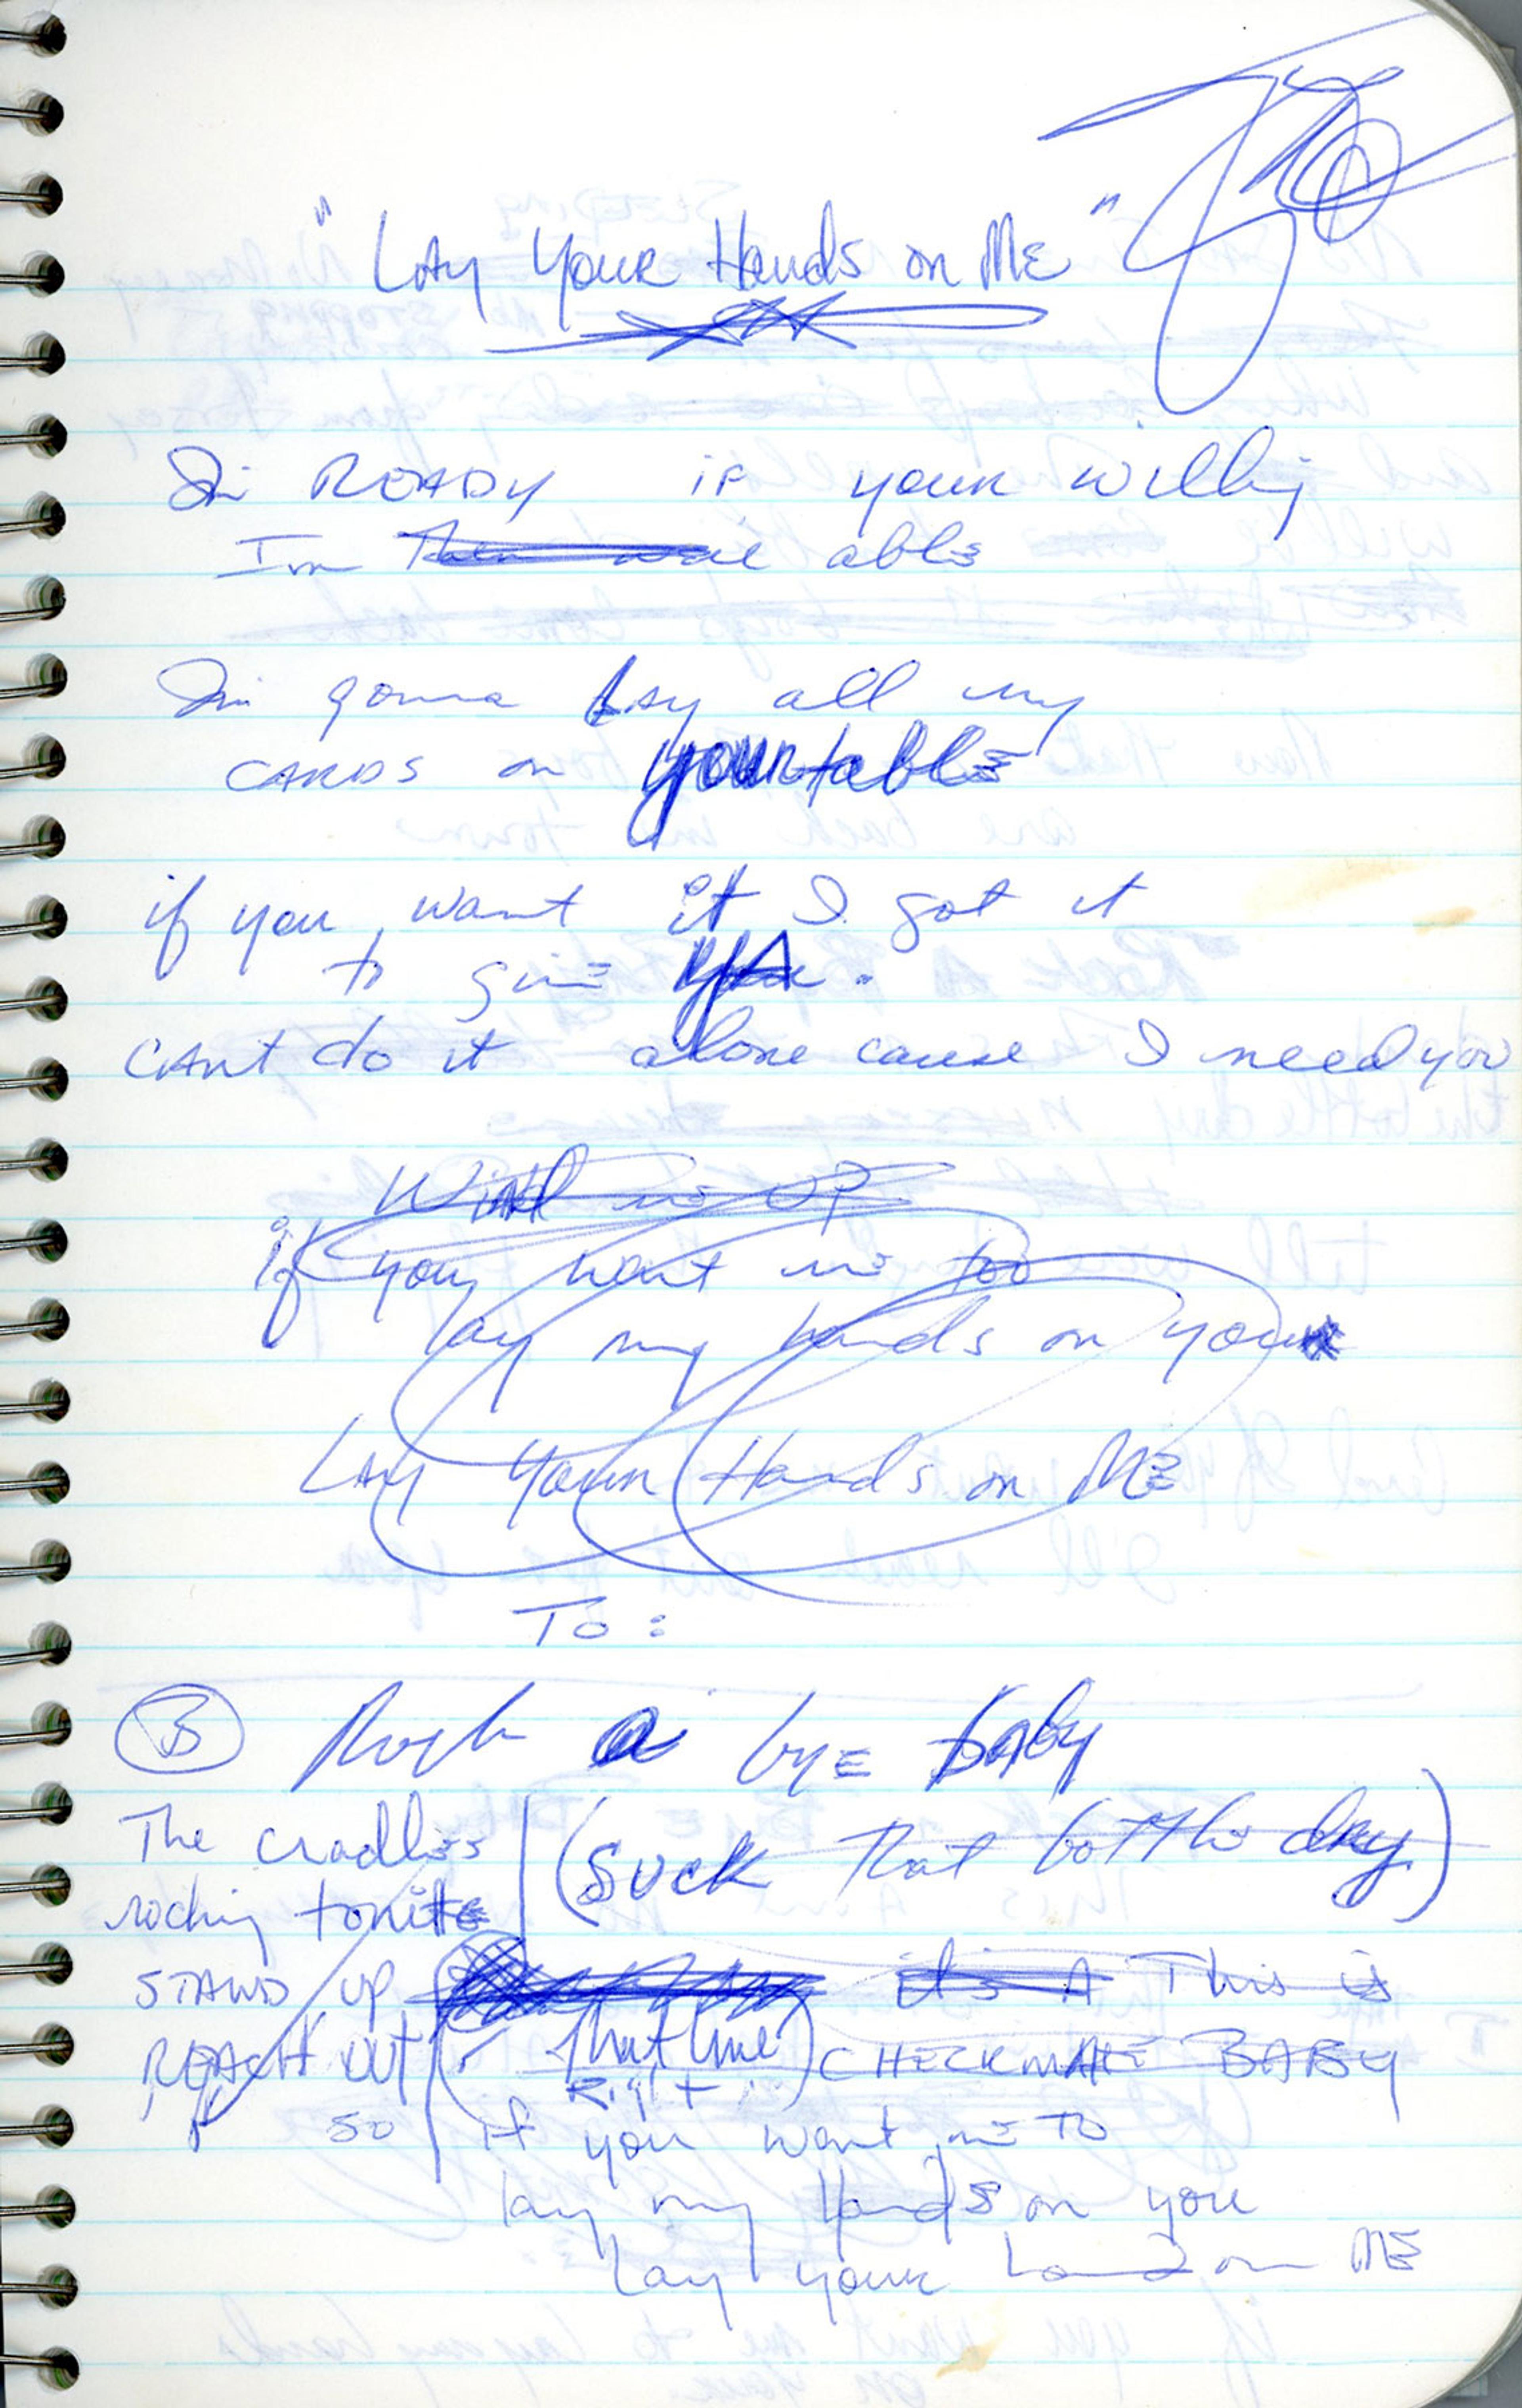 "Lay Your Hands on Me"
Im READY if your willing
Im able
Im gonna Lay all my
CARDS on your table
if you want it I got it
to give YA.
CANt do it alone cause I need you
Wind me UP
if you want me too
lay my hands on you
Lay Your Hands on ME
To:
B Rock a bye baby
The cradles (Suck that bottle dry)
rocking tonite
STAND UP it's A This is
REACH OUT that line CHECKMATE BABY
Right
so if you want me TO
lay my hands on you
Lay your hands on ME